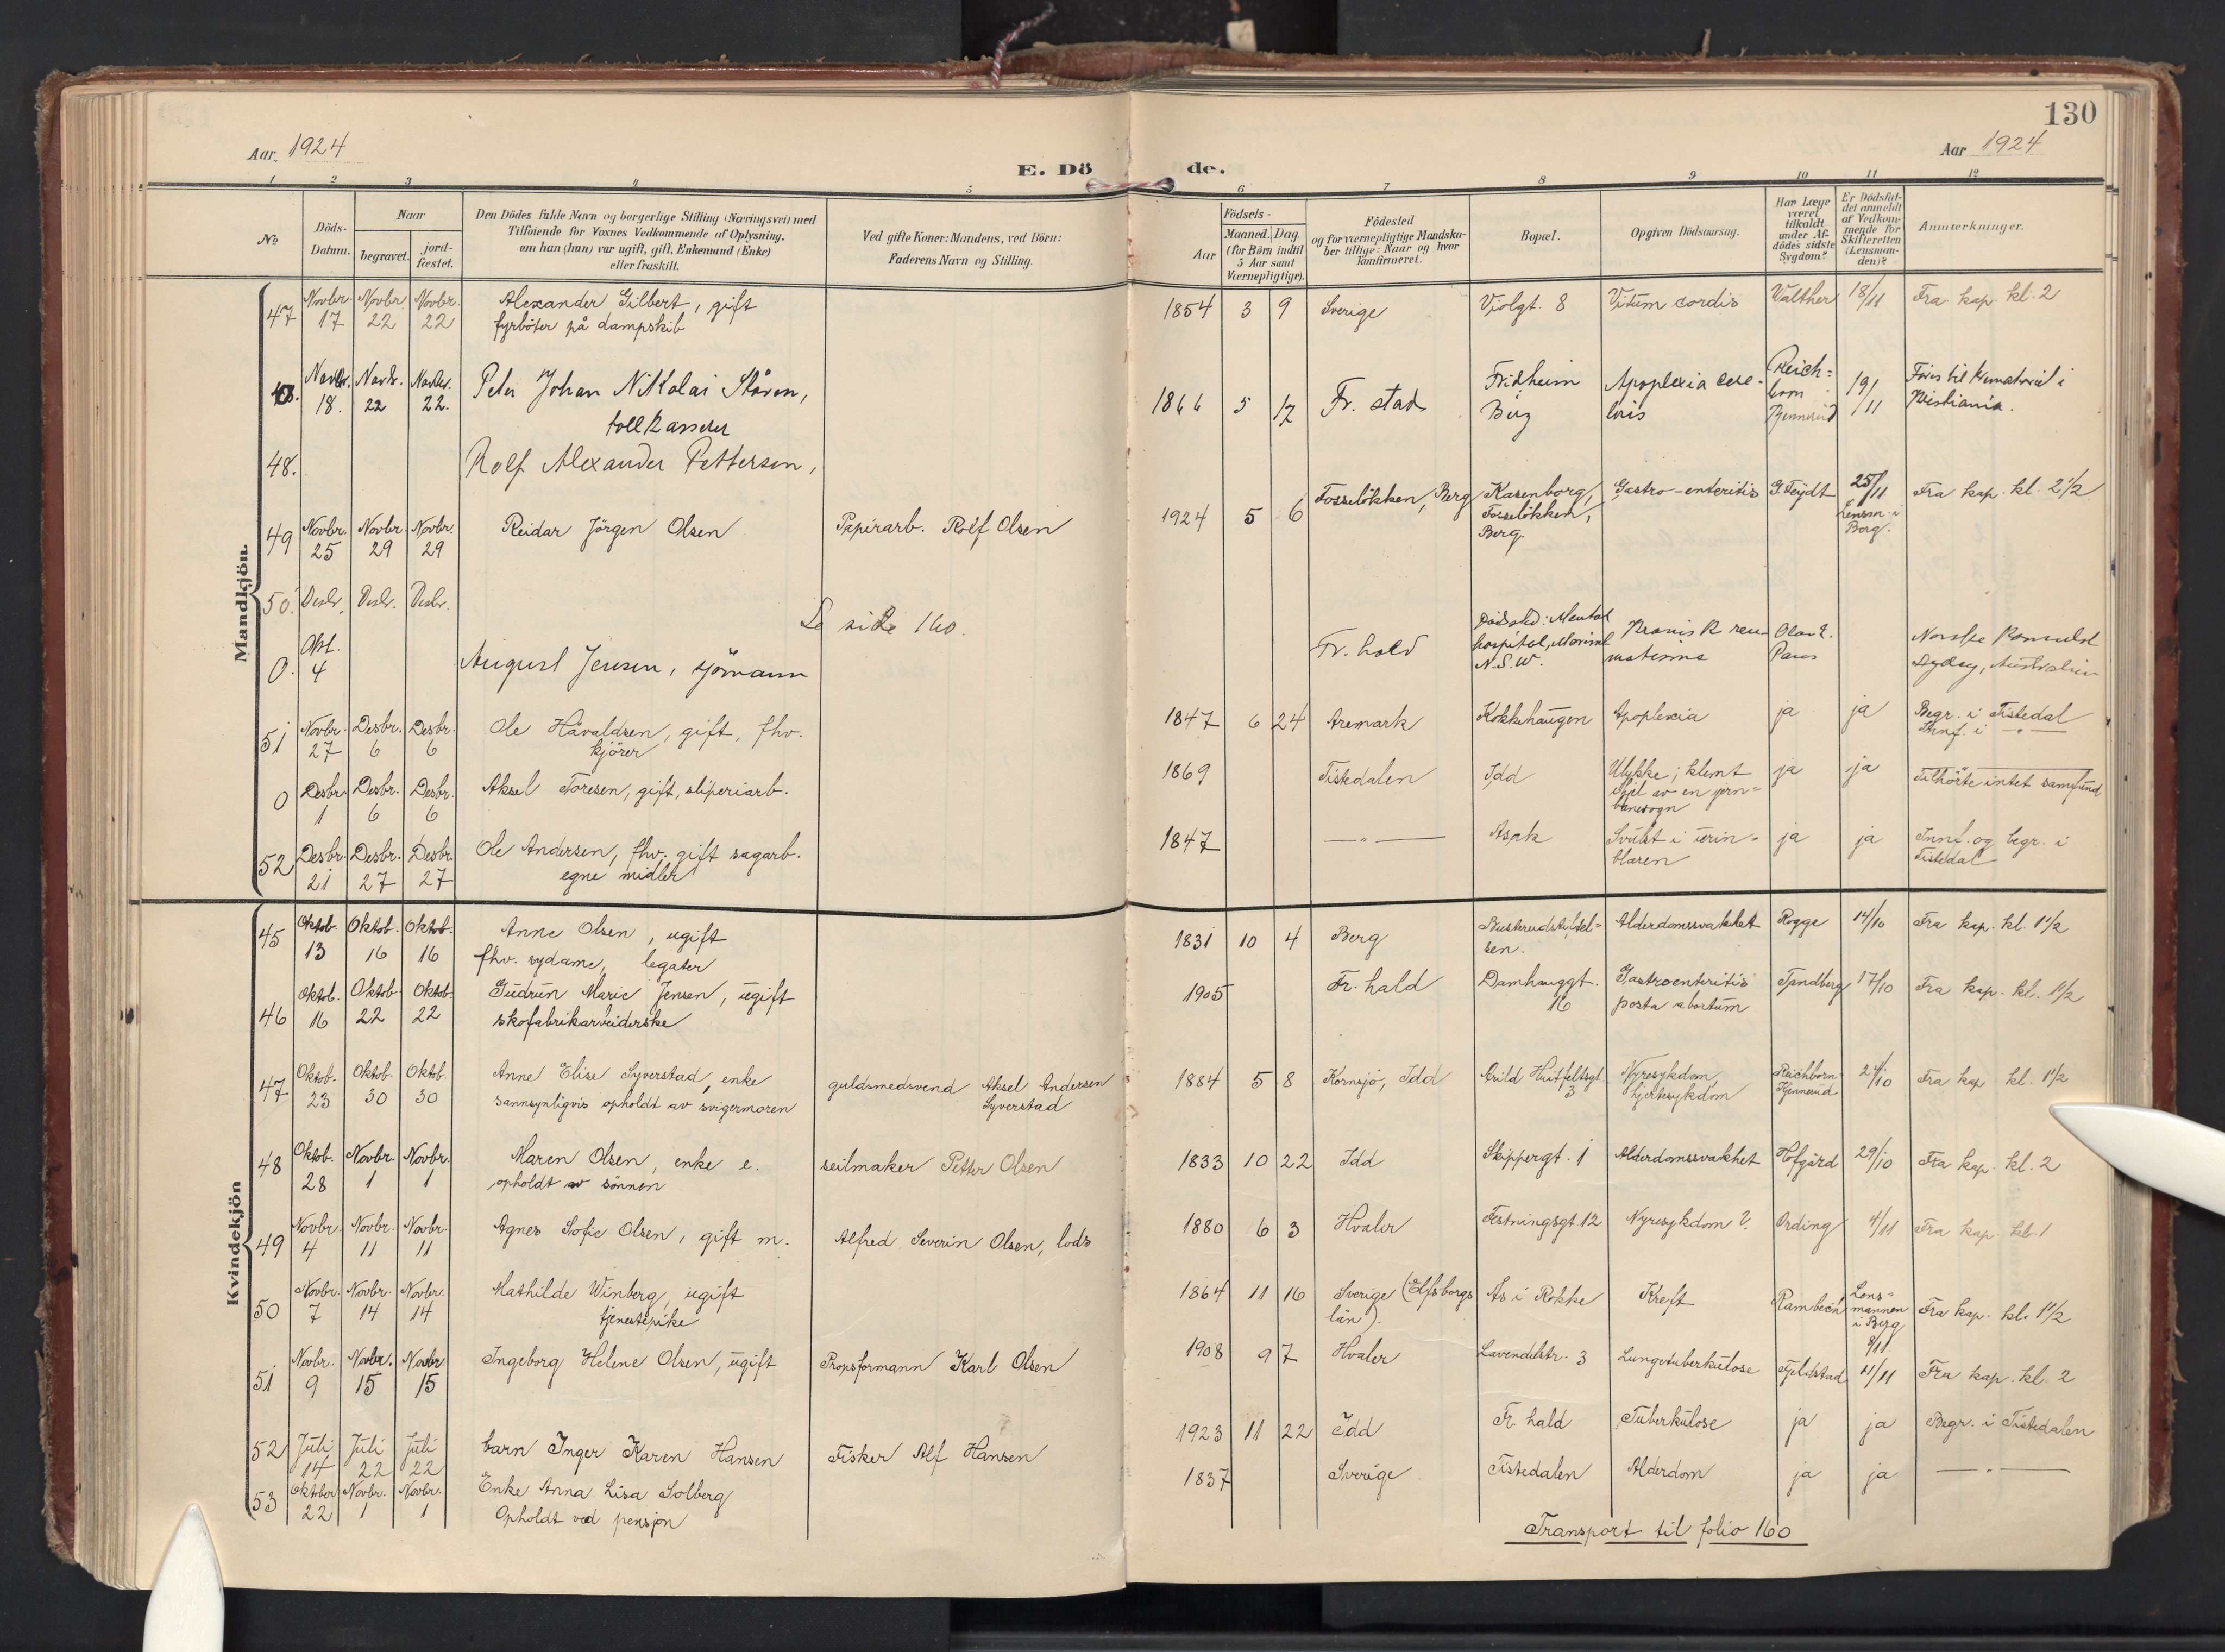 130
Aar 1924
Aar 1924
E. Dö de.
1 2 3 4 5 6 7 8 9 10 11 12
No
Döds-Datum.
Naar
begravet. jord-fæstet.
Den Dödes fulde Navn og borgerlige Stilling (Næringsvei) med
Tilföiende for Voxnes Vedkommende af Oplysning,
om han (hun) var ugift, gift, Enkemand (Enke)
eller fraskilt.
Ved gifte Koner: Mandens, ved Börn:
Faderens Navn og Stilling.
Födsels-
Aar
Maaned. Dag
(for Børn indtil
5 Aar samt
Værnepligtige).
Födested
og for værnepligtige Mandska-
ber tillige: Naar og hvor
konfirmeret.
Bopæl.
Opgiven Dödsaarsag.
Har Læge
været
tilkaldt
under Af-
dödes sidste
Sygdom?
Er Dödsfal-
det anmeldt
af Vedkom-
mende for
Skifteretten
(Lensman-
den)?
Anmerkninger.
Mandkjön.
47 Novbr. 17 Novbr 22 Novbr. 22 Alexander Gilbert, gift
fyrböter på dampskib
1854 3 9 Sverige Violgt. 8 Vitum cordis Walther 18/11 Fra kap. kl. 2
48. Novbr. 18. Novbr. 22 Novbr. 22. Peter Johan Nikolai Ståren,
tollkasserer
1866 5 12 Fr. stad Fridheim Berg Apoplexia cere-bris Reich=born 19/11 Føres til krematoriet i
Kristiania.
48. Rolf Alexander Pettersen,
49 Novbr. 25 Novbr. 29 Novbr. 29 Reidar Jörgen Olsen Papirarb. Rolf Olsen
1924 5 6 Fosselökken, Berg Karenborg, Fosselökken, Berg. Gastro-enteritis G. Fejdt 25/11 Lensm. i Berg. Fra kap. kl. 2 1/2
50. Desbr. Desbr. Desbr.
Se side 160.
0. Okt. 4 August Jensen, sjömann
Fr. hald Dödssted: Mental hospital, N.S.W. Kronisk reu-matisme Norske Konsulat
Sydney, Australien
51 Novbr. 27 Desbr. 6 Desbr. 6 Ole Håvaldsen, gift, fhv.
kjörer
1847 6 24 Aremark Kokkehaugen Apoplexia ja ja Begr. i Tistedal
Innf. i — " —
0 Desbr. 1 Desbr. 6 Desbr. 6 Aksel Toresen, gift, sliperiarb.
1869 Tistedalen Idd Ulykke; klemt
ihjel av en jern=
banevogn ja ja Tilhörte intet samfund
52 Desbr. 21 Desbr. 27 Desbr. 27 Ole Andersen, fhv. gift sagarb.
egne midler
1847 — " — Aspk Svulst i urin=
blæren ja ja Innf. og begr. i
Tistedal
Kvindekjön
45 Oktob. 13 Oktob. 16 Oktob. 16 Anne Olsen, ugift
fhv. sydame, legater
1831 10 4 Berg Busterudstiftel=
sen. Alderdomssvakhet Rygge 14/10 Fra kap. kl. 1 1/2
46 Oktob. 16 Oktob. 22 Oktob. 22 Gudrun Marie Jensen, ugift
skofabrikarbeiderske
1905 Fr. hald Damhauggt. 16 Gastroenteritis
posta abortum Tandberg 17/10 Fra kap. kl. 1 1/2
47 Oktob. 23 Oktob. 30 Oktob. 30 Anne Elise Syverstad, enke
sannsynligvis opholdt av svigermoren
guldsmedsvend Aksel Andersen
Syverstad
1884 5 8 Kornsjö, Idd Arild Huitfeltsgt. 3 Nyresykdom,
hjertesykdom Reichborn Kjennerud 24/10 Fra kap. kl. 1 1/2
48 Oktob. 28 Novbr. 1 Novbr. 1 Maren Olsen, enke e.
opholdt av sönnen
seilmaker Petter Olsen
1833 10 22 Idd Skippergt. 1 Alderdomssvakhet Hofgård 29/10 Fra kap. kl. 2
49 Novbr. 4 Novbr. 11 Novbr. 11 Agnes Sofie Olsen, gift m. Alfred Severin Olsen, lods
1880 6 3 Hvaler Festningsgt 12 Nyresykdom? Ording 4/11 Fra kap. kl. 1
50 Novbr. 7 Novbr. 14 Novbr. 14 Mathilde Winberg, ugift
tjenestepike
1864 11 16 Sverige (Elfsborgs
län). Ås i Rokke Kreft Rambech Lens=
mannen
i Berg
8/11. Fra kap. kl. 1 1/2
51 Novbr. 9 Novbr. 15 Novbr 15 Ingeborg Helene Olsen, ugift Propsformann Karl Olsen
1908 9 7 Hvaler Lavendelstr. 3 Lungetuberkulose Fjeldstad 11/11 Fra kap. kl. 2
52 Juli 14 Juli 22 Juli 22 barn Inger Karen Hansen Fisker Alf Hansen
1923 11 22 Idd Fr. hald Tuberkulose ja ja Begr. i Tistedalen
53 Oktober 22 Novbr. 1 Novbr. 1 Enke Anna Lisa Solberg
Opholdt ved pensjon
1837 Sverige Tistedalen Alderdom ja ja — " —
Transport til folio 160